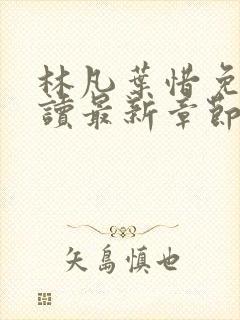 林凡葉惜免
讀最新章節
矢島慎也